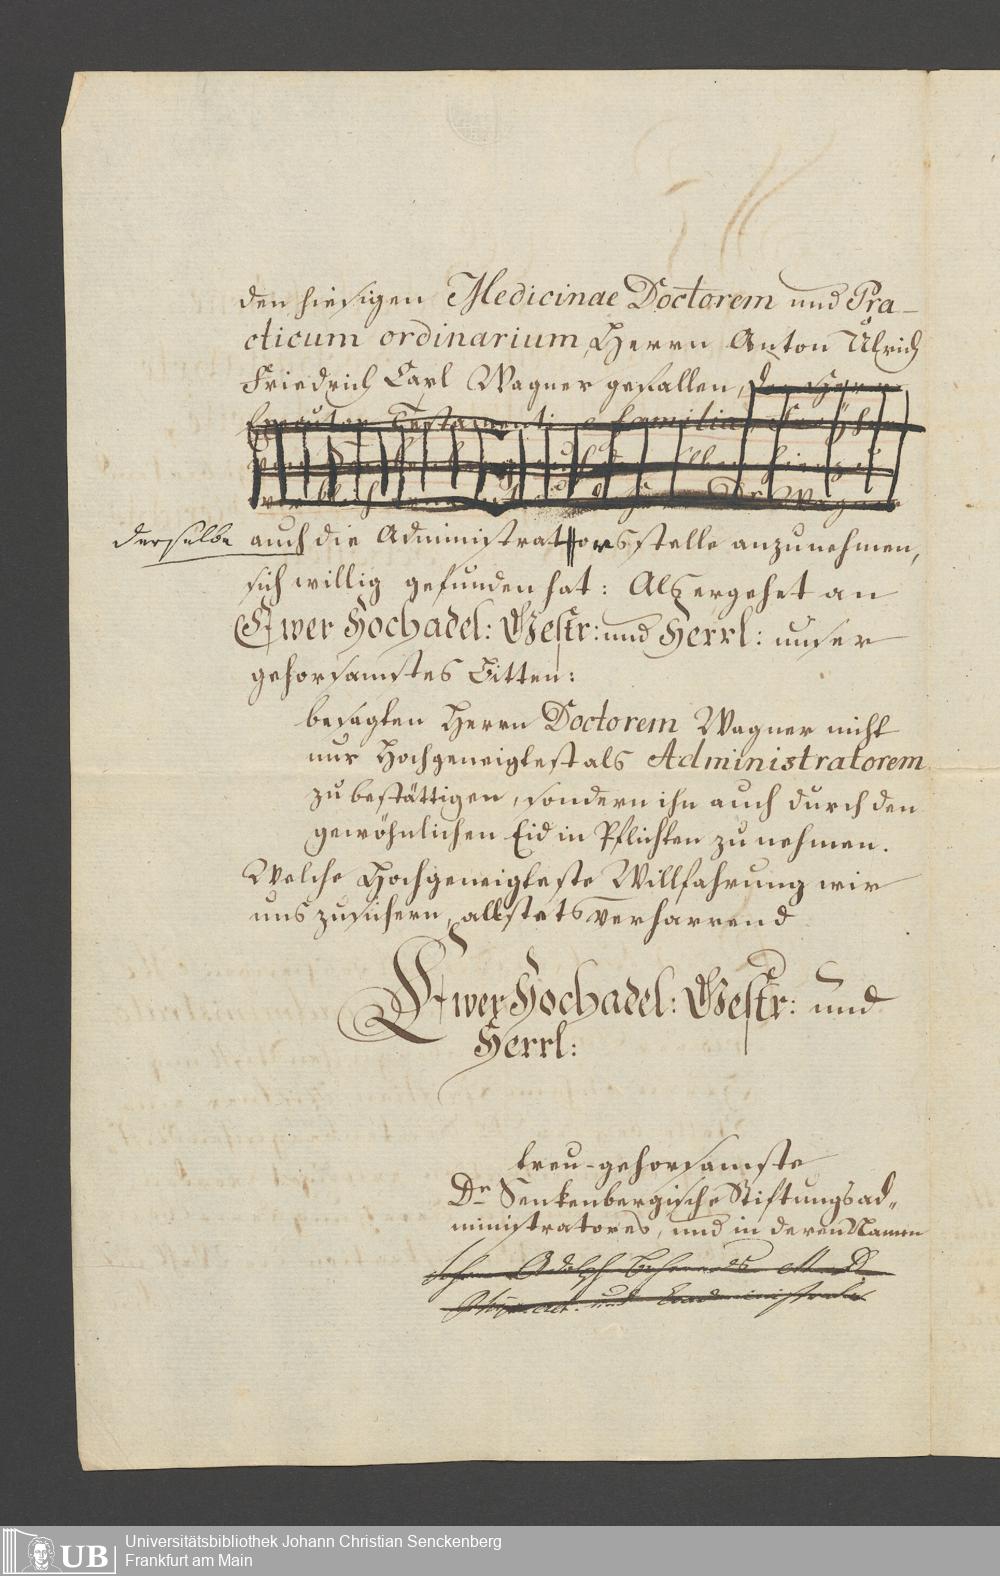 den hiesigen Medicinae Doctorem und Pra-
cticum ordinarium, Herrn Anton Ulrich
Friedrich Carl Wagner gefallen, der Herr
Executor Testamenti e familia,
Dr Wagner
derselbe auch die Administratorsstelle anzunehmen,
sich willig gefunden hat: Als ergehet an
Ewer Hochadel: Gestr: und Herrl: unser
gehorsamstes Bitten:
besagten Herrn Doctorem Wagner nicht
nur Hochgeneigtest als Administratorem
zu bestättigen, sondern ihn auch durch den
gewöhnlichen Eid in Pflichten zu nehmen.
Welche Hochgeneigteste Willfahrung wir
uns zusichern, allstets verharrend
Ewer Hochadel: Gestr: und
Herrl:
treu-gehorsamste
Dr Senkenbergische Stiftungsad„
ministratores, und in deren Namen
Johann Adolph Behrends M. D.
Physicus und Administrator
Universitätsbibliothek Johann Christian Senckenberg
Frankfurt am Main
UB